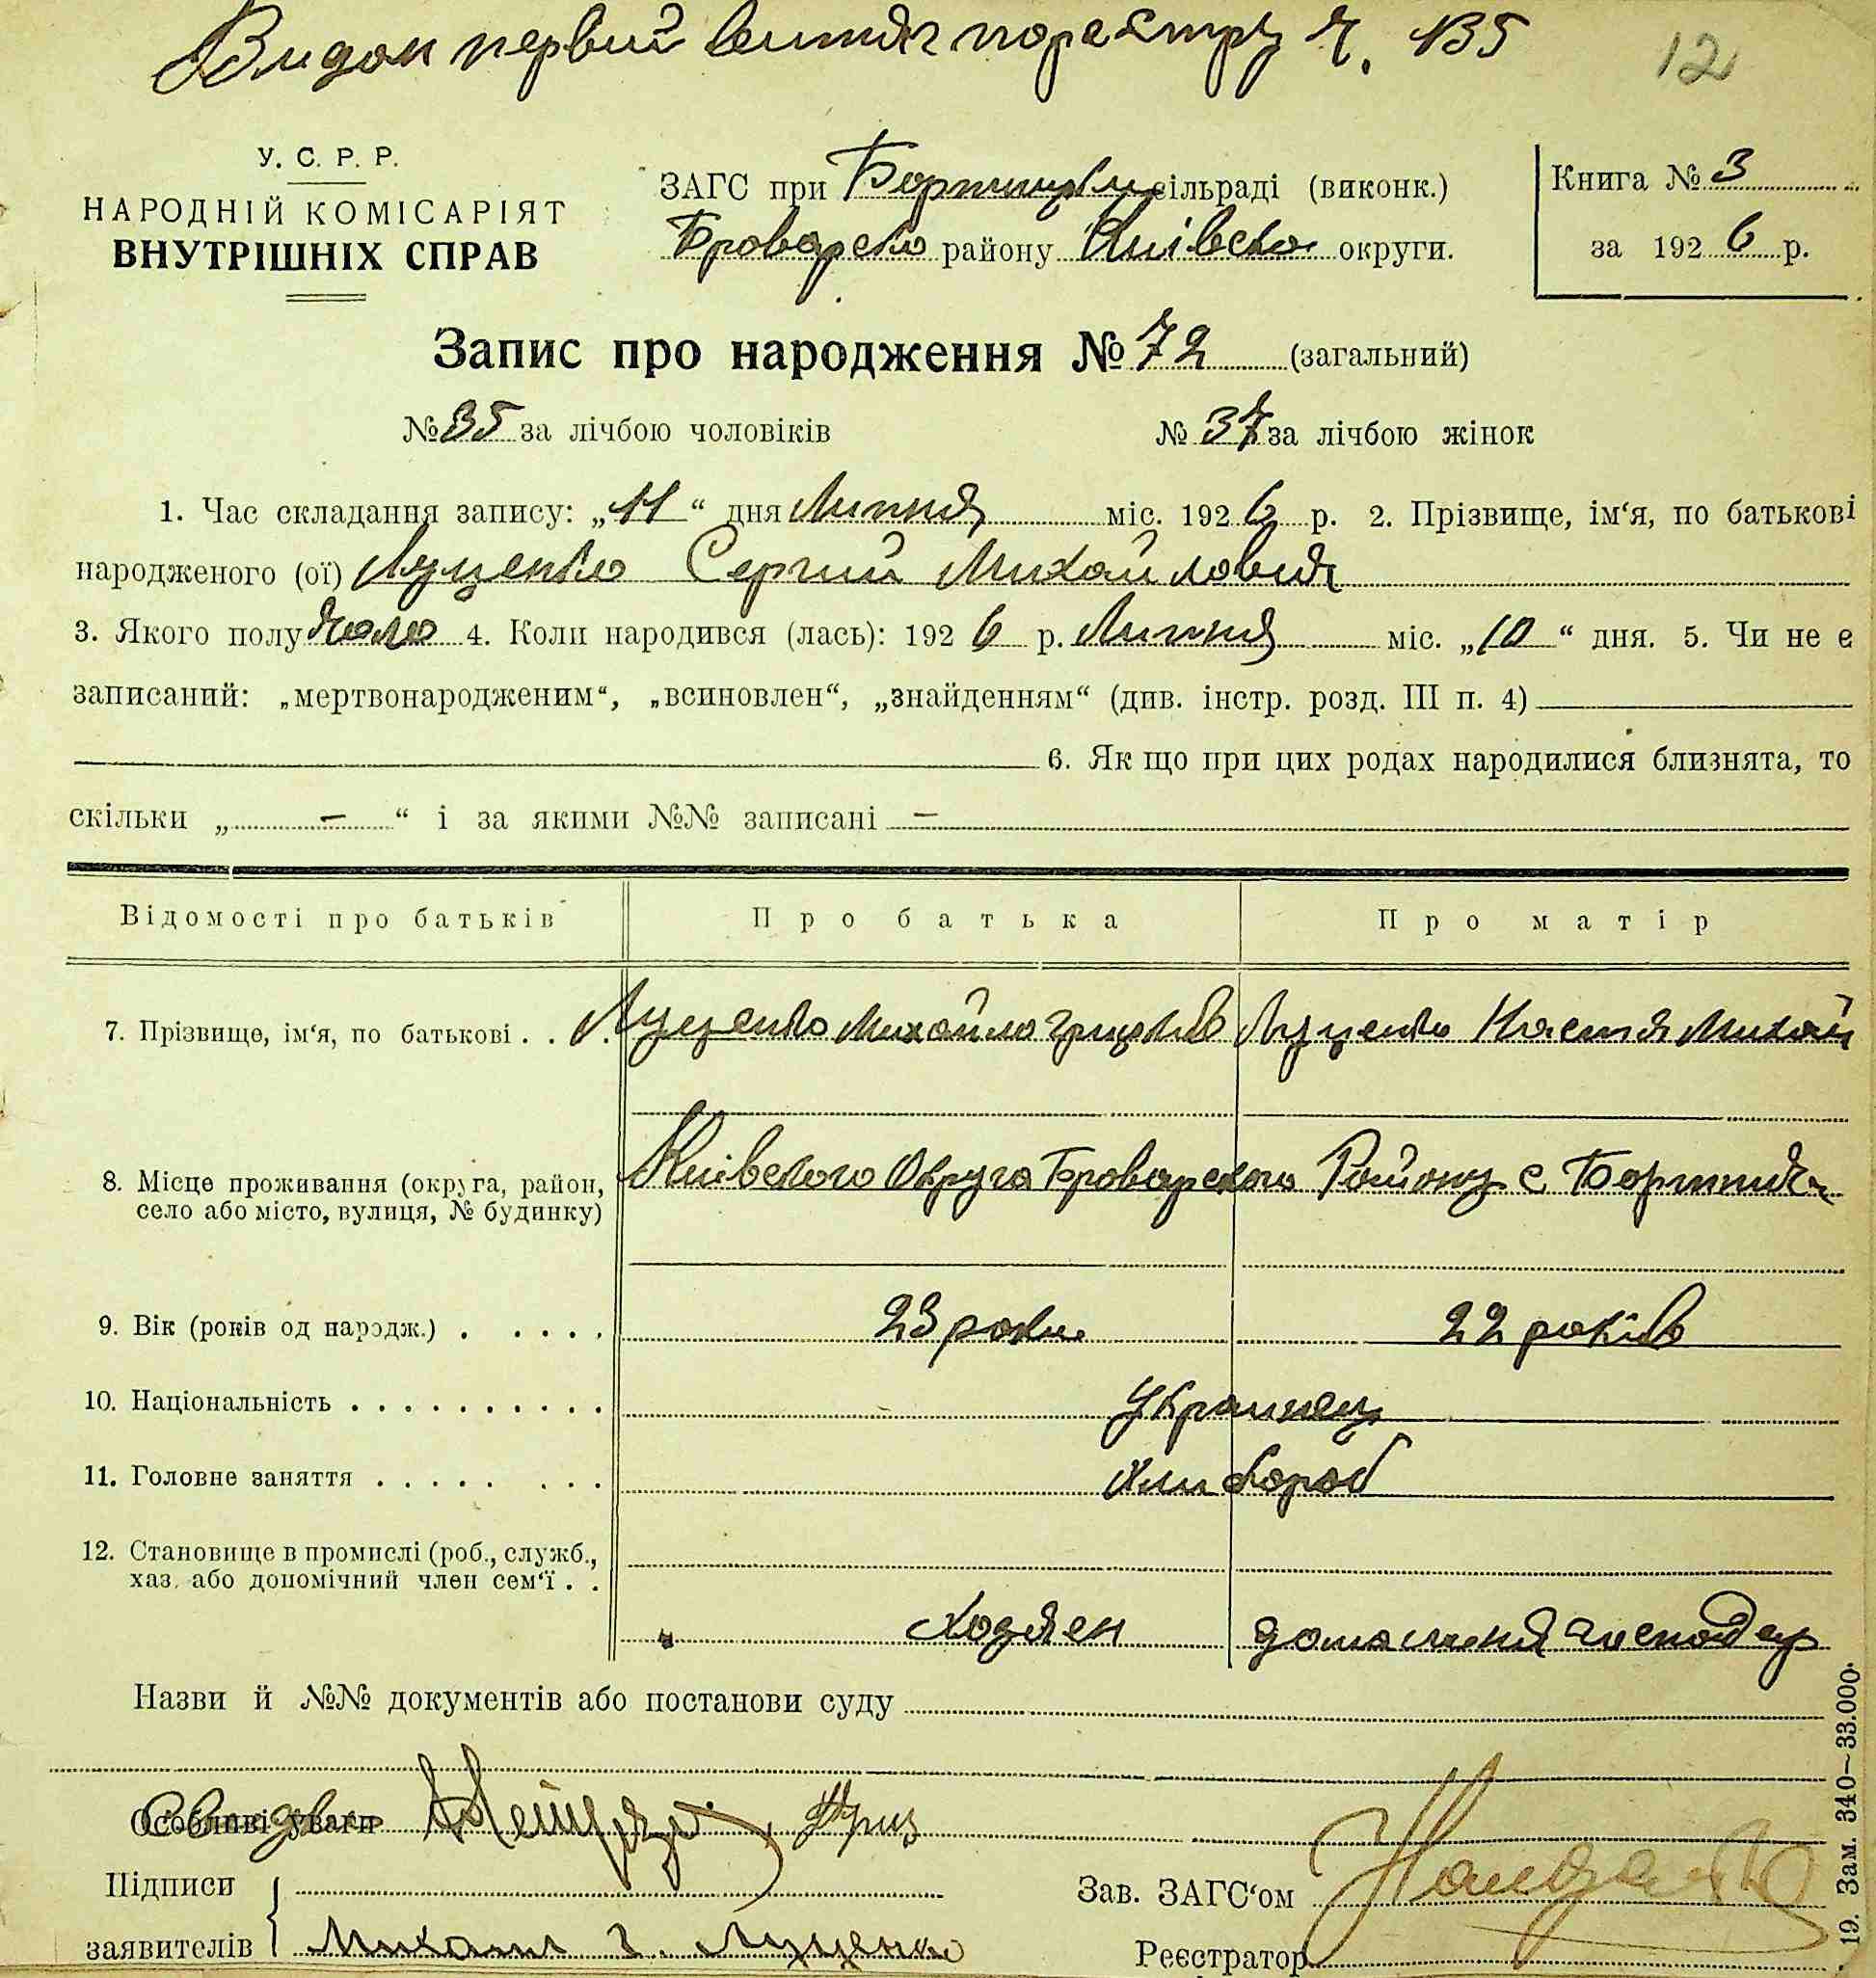 Видан первий витяг по реєстру Ч. 135
12
У. С. Р. Р.
НАРОДНІЙ КОМІСАРІЯТ
ВНУТРІШНІХ СПРАВ
ЗАГС при сільраді (виконк.)
Броварско району Київско округи.
Книга № 3
за 1926 р.
Запис про народження № 72 (загальний)
№ 35 за лічбою чоловіків
№ 37 за лічбою жінок
1. Час складання запису: „11“ дня Липня міс. 1926 р. 2. Прізвище, ім‘я, по батькові
народженого (ої) Луценко Сергий Михайлович
3. Якого полу чоло 4. Коли народився (лась): 1926 р. Липня міс. „10“ дня. 5. Чи не є
записаний: „мертвонародженим“, „всиновлен“, „знайденням“ (див. інстр. розд. III п. 4)
6. Як що при цих родах народилися близнята, то
скільки „ – “ і за якими №№ записані –
Відомості про батьків
Про батька
Про матір
7. Прізвище, ім‘я, по батькові . . Луценко Михайло Грицьків Луценко Настя Михай
8. Місце проживання (округа, район, Київского Округа Броварского Району с Бортничи
село або місто, вулиця, № будинку)
9. Вік (років од народж.) . . . . . 23 роки 22 років
10. Національність . . . . . . . . . . Украинец
11. Головне заняття . . . . . . . . Хлибороб
12. Становище в промислі (роб., служб.,
хаз. або допомічний член сем‘ї . .
Ходяен домашня господар
Назви й №№ документів або постанови суду
Особливі уваги
Підписи
заявителів
Михаил Г. Луценко
Зав. ЗАГС‘ом
Реєстратор
19. Зам. 340—33.000.